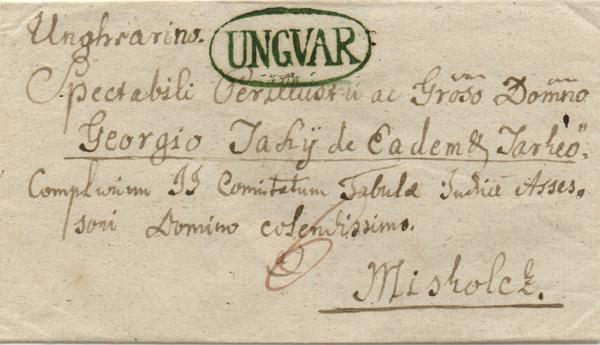 Unghvarino.
UNGVAR
Spectabili Perillustri ac Groso Domno
Georgio Jakÿ de Eadem & Tarkeo"
Complurium II Comitatum Tabulæ Judic Asses-
sori Domino colendissimo.
6
Miskolcz.